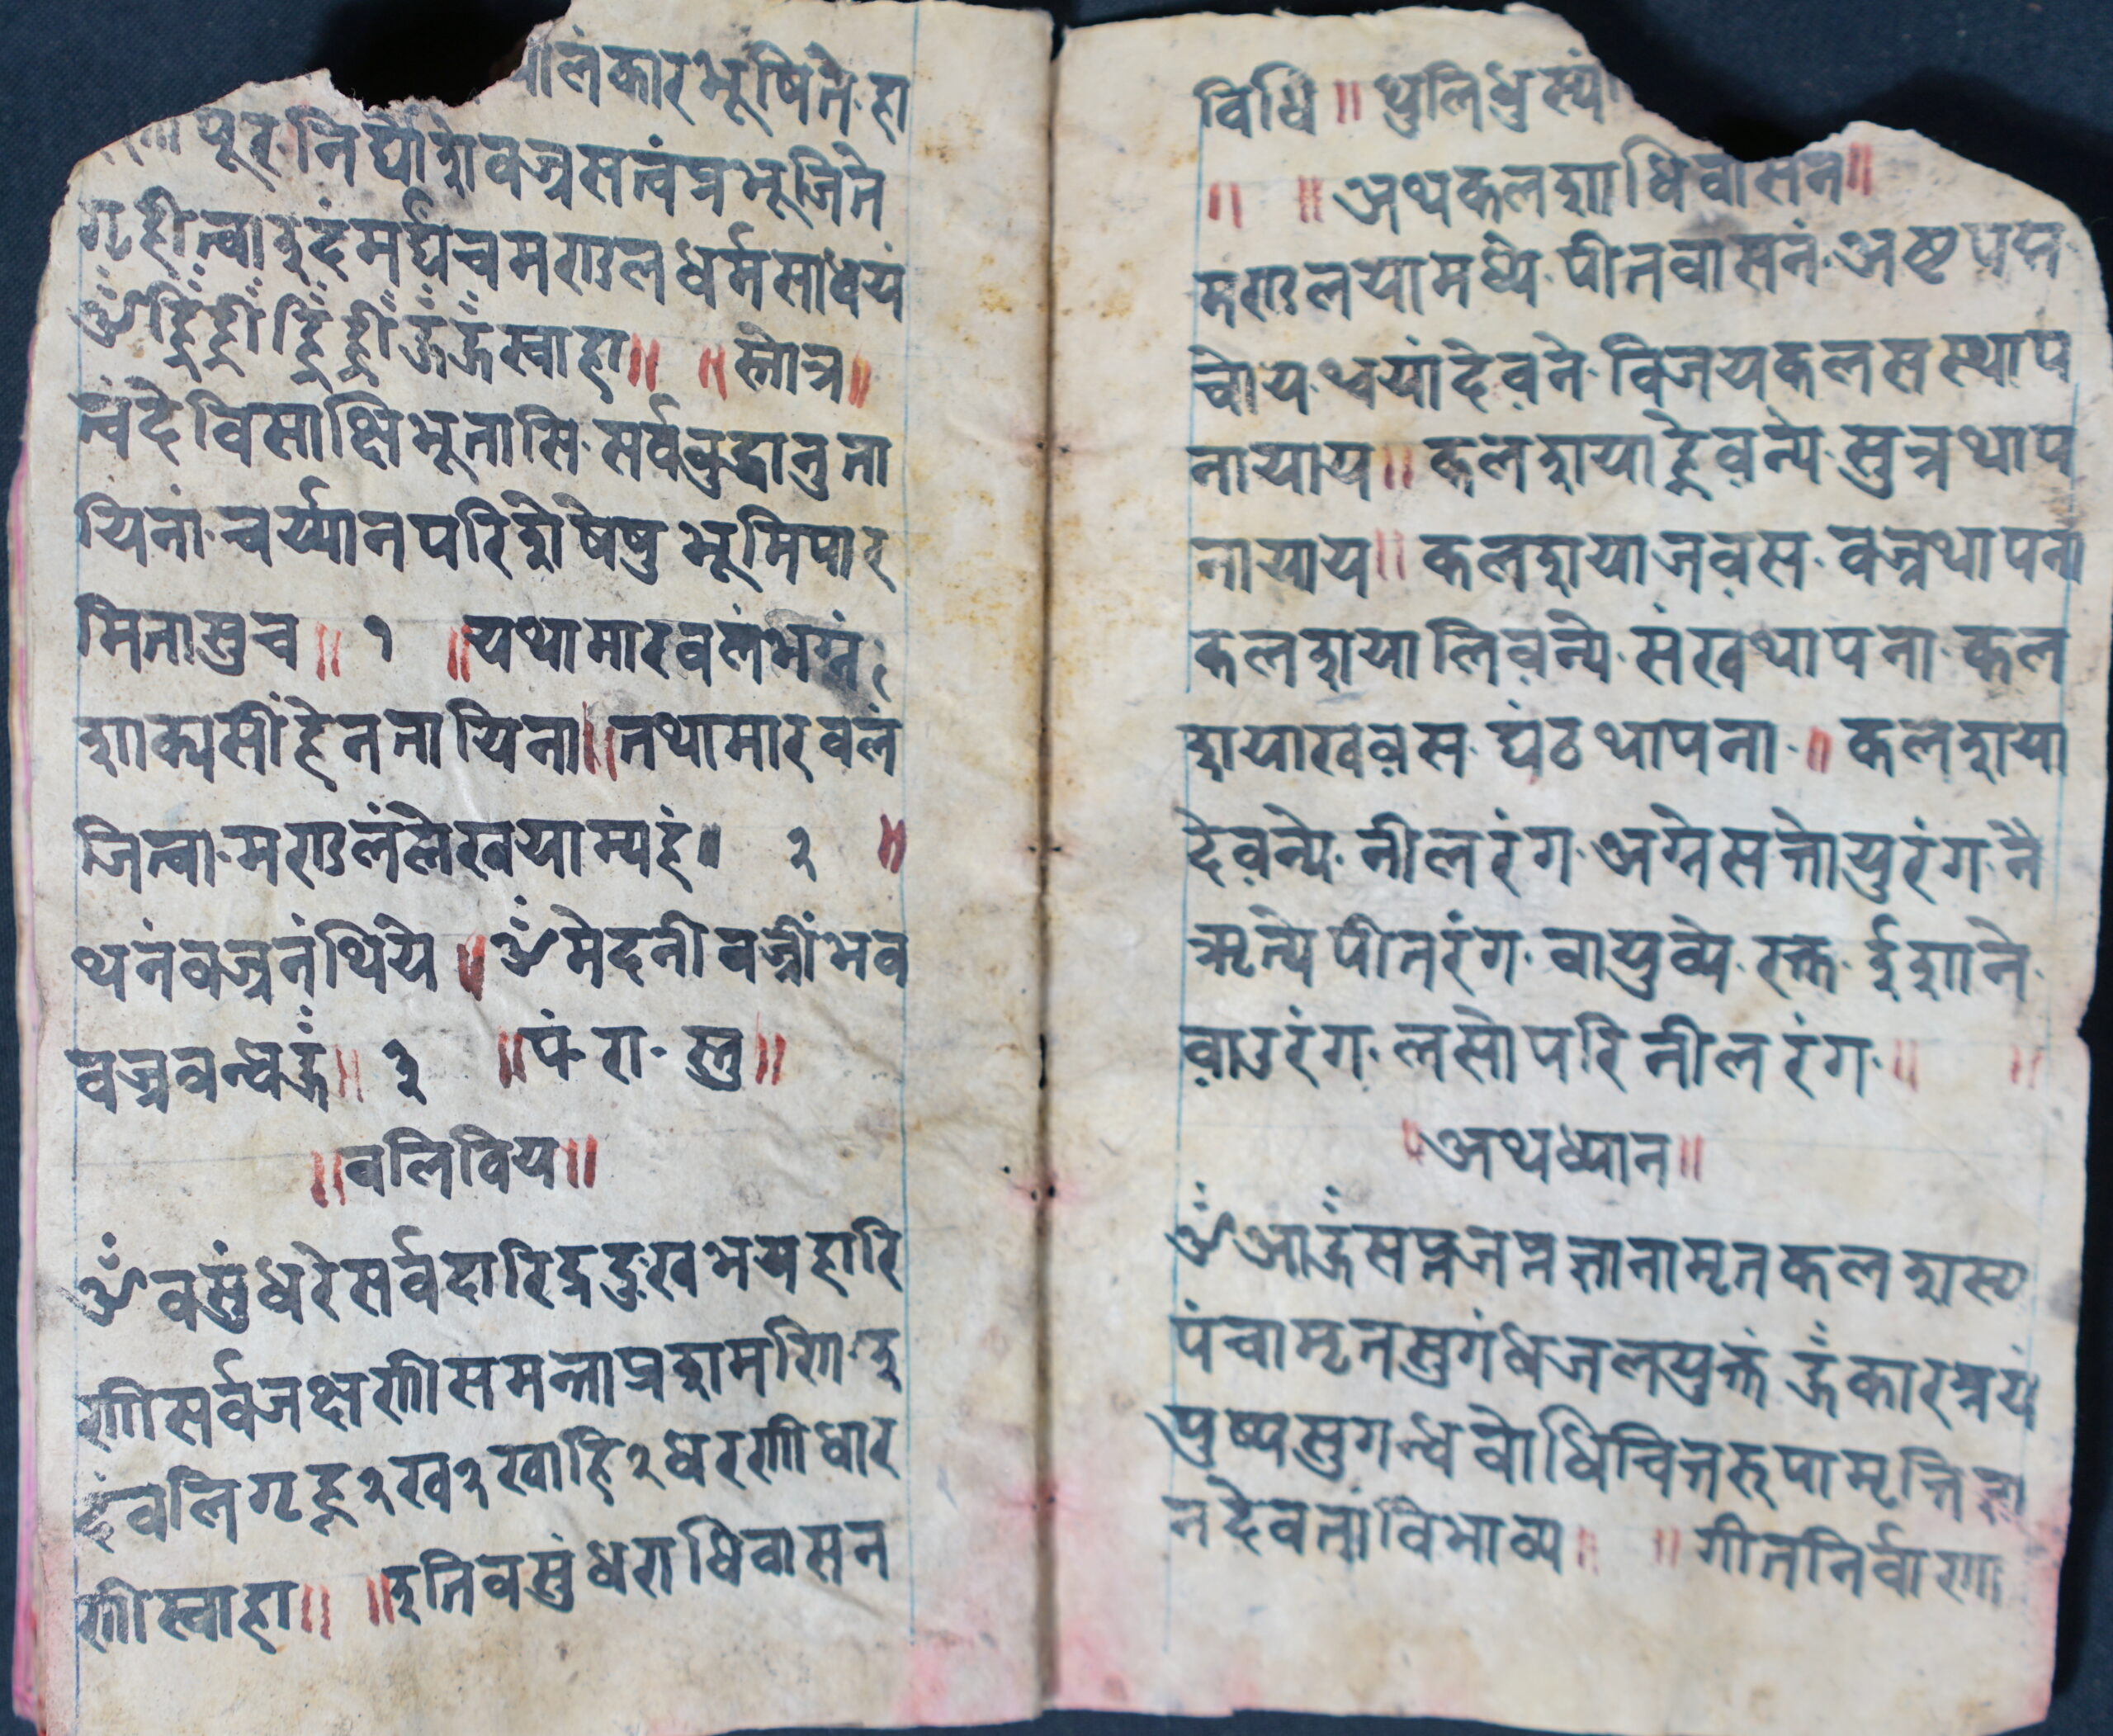 लंकारभूषिते·हा
पूर·निर्घोशेवज्रसत्वंप्रभूजिते
गृहीत्वाइदंमर्घंचमण्डलधर्मसाधयं
ॐह्रिँह्रीँह्रिँह्रीँहूँहूँस्वाहा॥ ॥स्तोत्र॥
त्वंदेविसाक्षिभूतासि·सर्वबुद्धानुता
यिनां·चर्य्यानपरिशेषेषुभूमिपार
मितासुच॥ १ ॥यथामारबलंभग्नं
शाक्यसींहेनतायिना॥तथामारबलं
जित्वा·मण्डलंलेखयाम्यहं॥ २ ॥
थनंवज्रनंथिये॥ॐमेदनीवज्रींभव
वज्रबन्धहूँ॥ ३ ॥पं·रा·स्तु॥
॥बलिविय॥
ॐवसुंधरेसर्वदारिद्रदुःखभयहारि
णीसर्वजक्षणीसमन्ताप्रशमणि·इ
दंबलिगृह्न२खख२खाहि२धरणीधार
णीस्वाहा॥ ॥इतिवसुंधराधिवासन
विधि॥थुलिधुस्यं
॥ ॥अथकलशाधिवासन॥
मण्डलयामध्ये·पीतवासनं·अष्टपत्र
चोय·थ्वयांदेव़ने·विजयकलसस्थाप
नायाय॥कलशयाहेव़न्ये·सुत्रथाप
नायाय॥कलशयाजव़स·वज्रथापना
कलशयालिव़न्ये·संखथापना·कल
शयाखव़स·घंठथापना·॥कलशया
देव़न्ये·नीलरंग·अग्नेसत्तोयुरंग·नै
ऋत्ये पीतरंग·वायुव्ये·रक्त·ईशाने·
व़ाउरंग·लसोपरिनीलरंग·॥ ॥
॥अथध्यान॥
ॐआहूँसप्तजप्तज्ञानामृतकलशस्य
पंचामृतसुगंधजलयुक्तंहूँकारत्रयं
पुष्पसुगन्धबोधिचित्तरूपामृत्तिज्ञा
नदेवतांविभाव्य॥ ॥गीतनिर्वाण